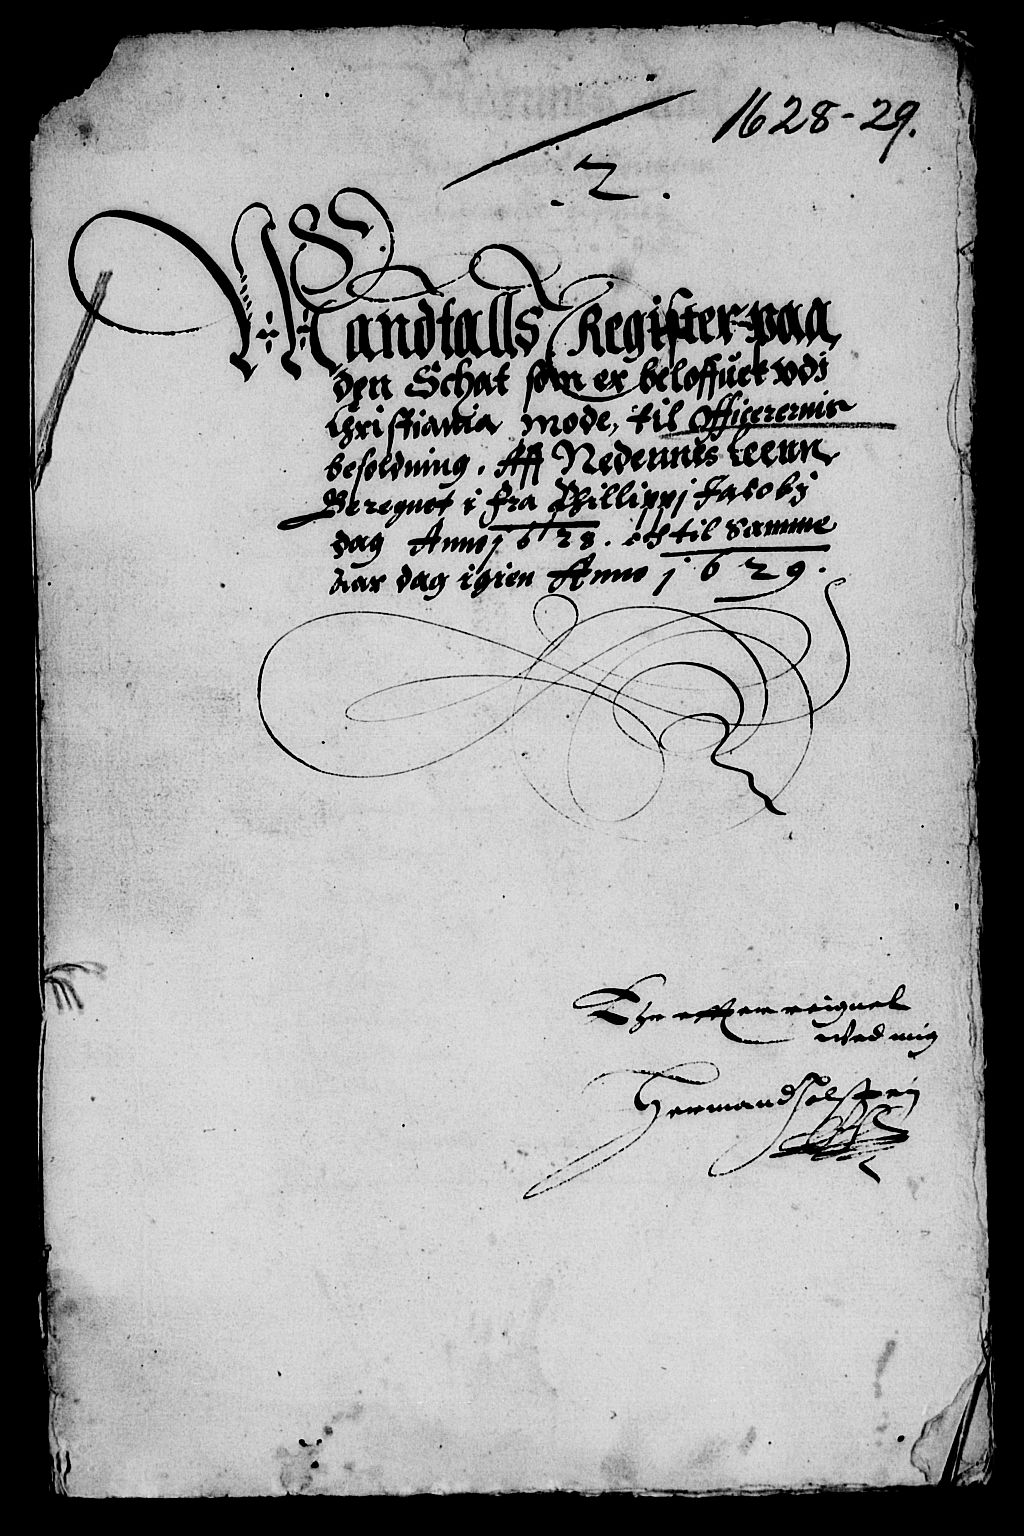 1628-29.
2.
Mandtalls Register paa
den Schat som er beloffuet vdi
Christiania mode, til Officerernis
besoldning. Aff Nedennes Leenn
Beregnet i fra Phillippj Jacobj
dag Anno 1628. och til Samme
aar dag igien Anno 1629.
effter reignet
wed mig
Hermand Holstein